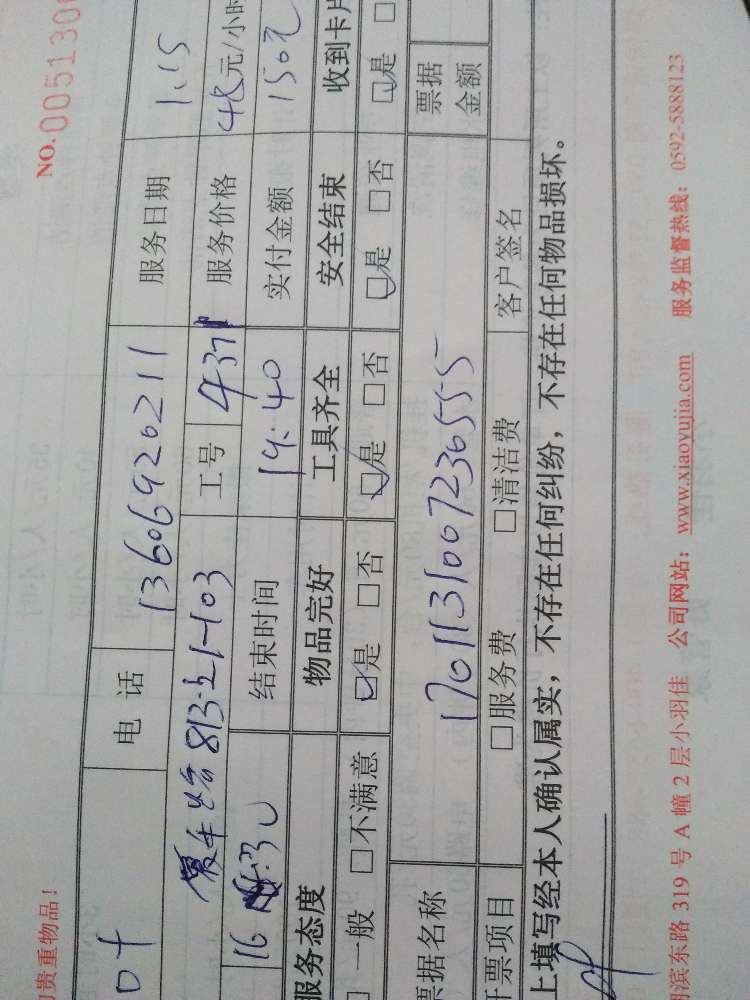 的贵重物品!
NO. 0051306
电话 13606920211 服务日期 1.15
813-21-103 工号 437 服务价格 48元/小时
16 :30 结束时间 19:40 实付金额 150元
服务态度 物品完好 工具齐全 安全结束 收到卡片
□一般 □不满意 ☑是 □否 ☑是 □否 ☑是 □否 ☑是
票据名称 17011310072365555 票据金额
开票项目 □服务费 □清洁费 客户签名
上填写经本人确认属实,不存在任何纠纷,不存在任何物品损坏。
滨东路 319 号 A 幢 2 层小羽佳 公司网站:www.xiaoyujia.com 服务监督热线:0592-5888123